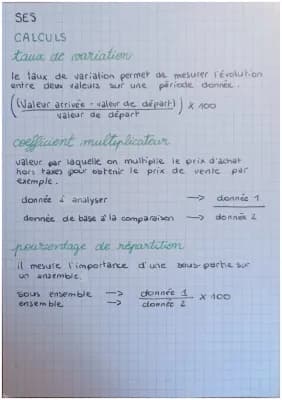 SES
CALCULS
taux de variation
le taux de variation permet de mesurer l'évolution
entre deux valeurs sur une période donnée.
((Valeur arrivée - valeur de départ) / valeur de départ) x 100
coefficient multiplicateur
valeur par laquelle on multiplie le prix d'achat
hors taxes pour obtenir le prix de vente par
exemple.
donnée à analyser --> donnée 1
donnée de base à la comparaison --> donnée 2
pourcentage de répartition
il mesure l'importance d'une sous-partie sur
un ensemble.
sous ensemble --> donnée 1 x 100
ensemble --> donnée 2